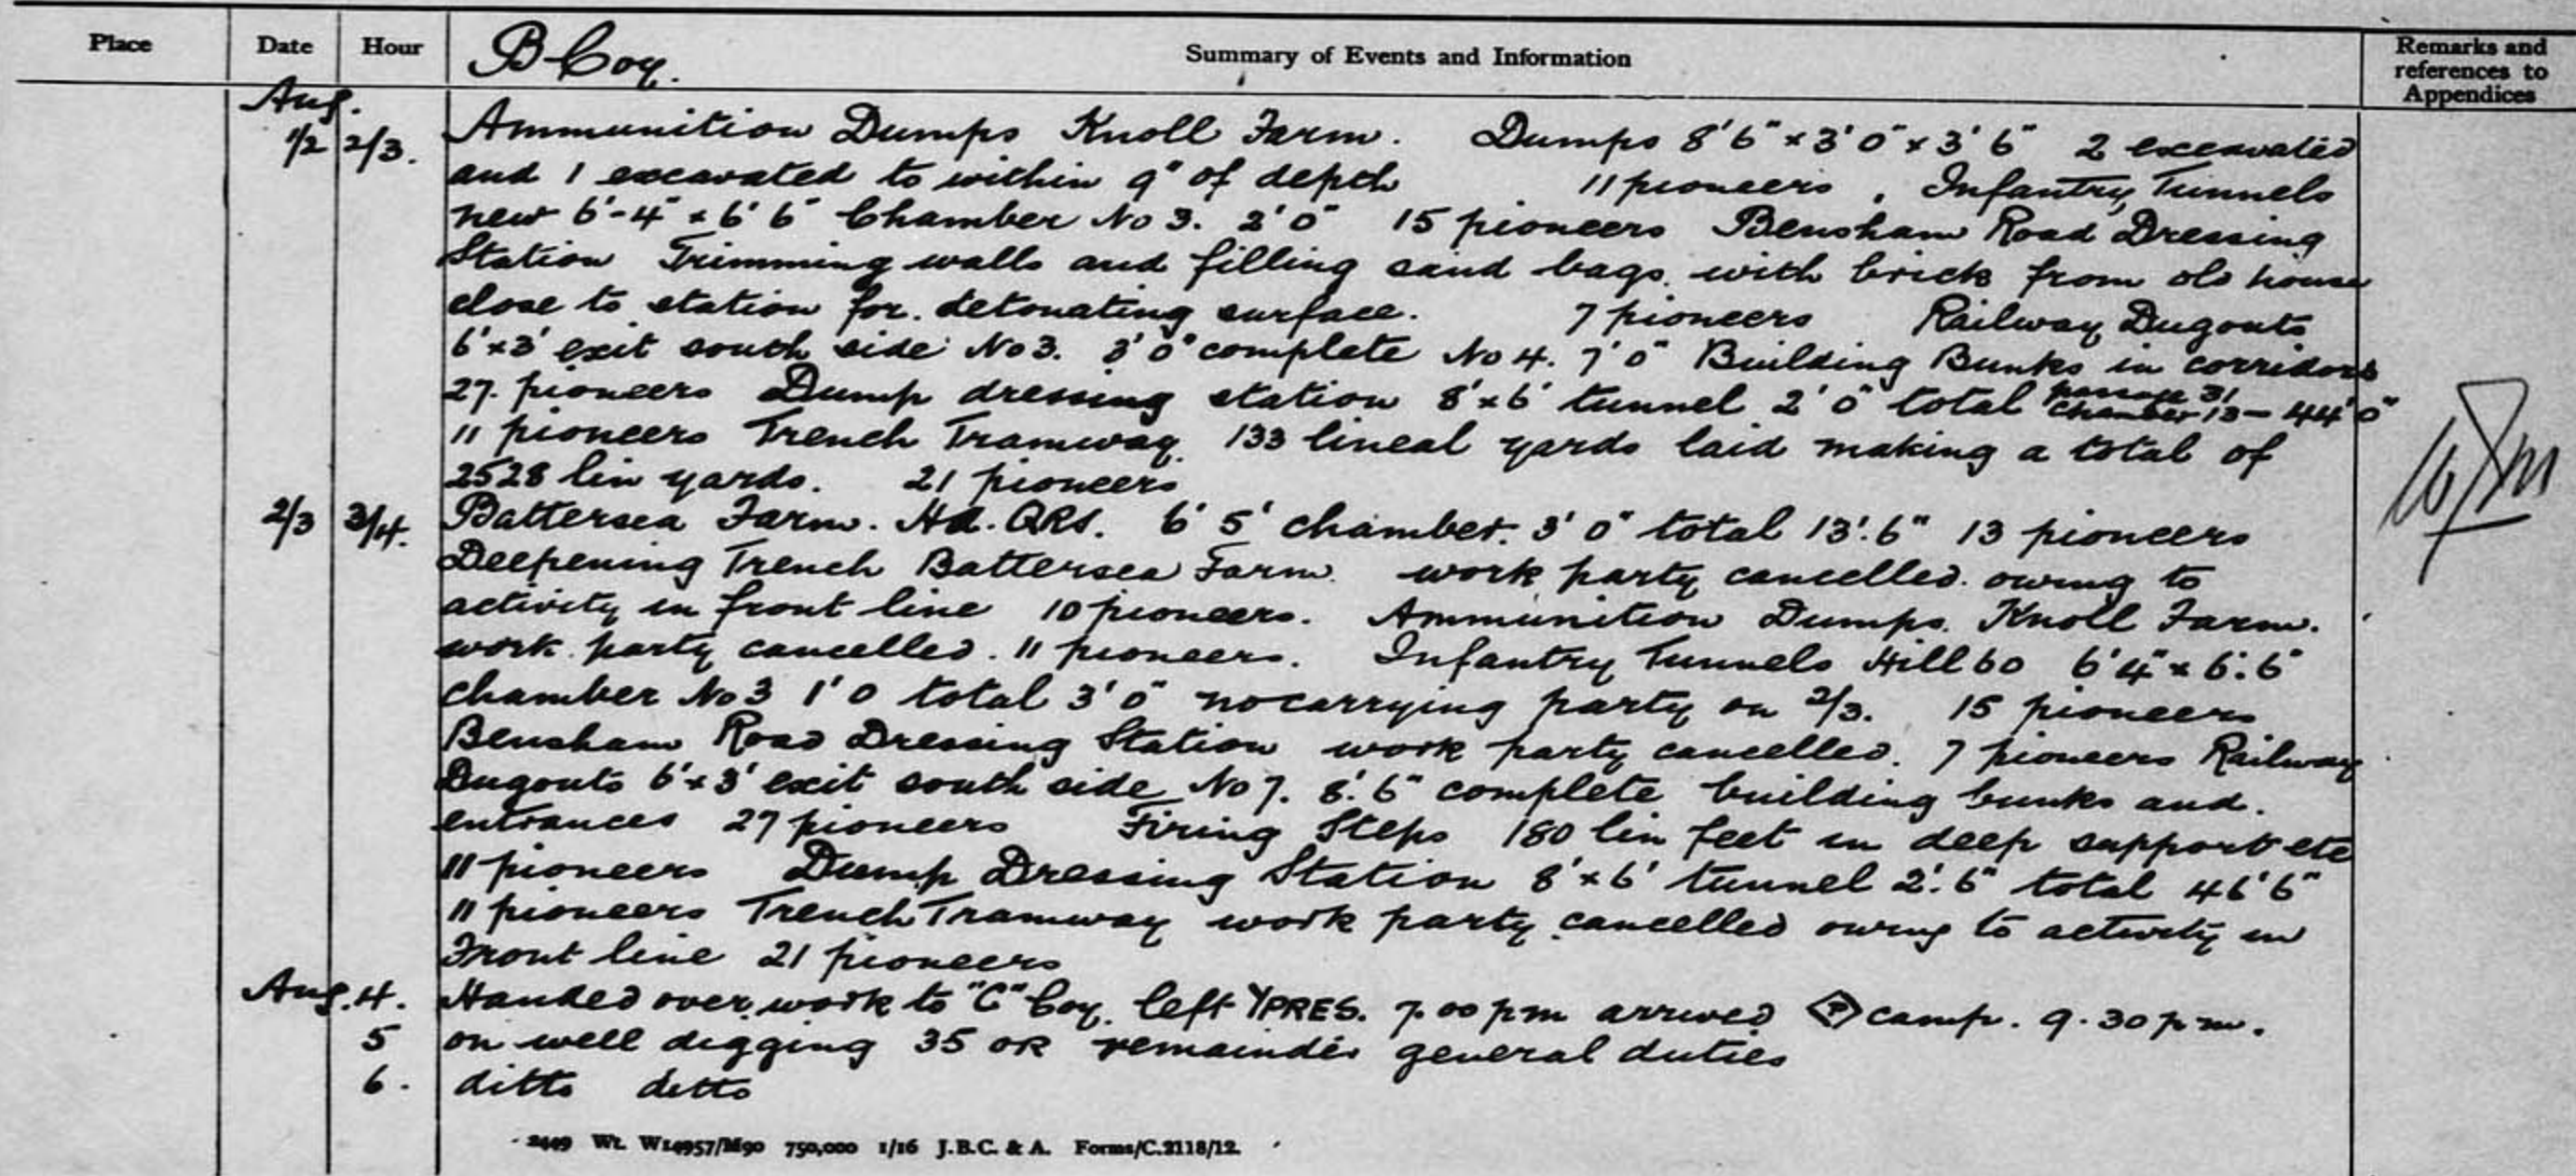 Place Date Hour B Coy. Summary of Events and Information Remarks and references to Appendices
Aug.
1/2 2/3. Ammunition Dumps Knoll Farm. Dumps 8'6" x 3'0" x 3'6" 2 excavated
and 1 excavated to within 9" of depth 11 pioneers, Infantry Tunnels
new 6'-4" x 6'6" Chamber No 3. 2'0" 15 pioneers Bensham Road Dressing
Station Trimming walls and filling sand bags with brick from old house
close to station for detonating surface. 7 pioneers Railway Dugouts
6'x3' exit south side No 3. 3'0" complete No 4. 7'0" Building Bunks in corridors
27. pioneers Dump dressing station 8'x6' tunnel 2'0" total passage 31 chamber 13 - 44'0"
11 pioneers Trench Tramway. 133 lineal yards laid making a total of
2528 lin yards. 21 pioneers
2/3 3/4. Battersea Farm. Hd. QRS. 6' 5' chamber. 3'0" total 13'.6" 13 pioneers
Deepening Trench Battersea Farm. work party cancelled. owing to
activity in front line 10 pioneers. Ammunition Dumps. Knoll Farm.
work party cancelled. 11 pioneers. Infantry Tunnels Hill 60 6'4" x 6'.6"
chamber No 3 1'0 total 3'0" no carrying party on 2/3. 15 pioneers
Bensham Road Dressing Station work party cancelled. 7 pioneers Railway
Dugouts 6'x3' exit south side No 7. 8'.6" complete building bunks and.
entrances 27 pioneers Firing Steps 180 lin feet in deep support etc
11 pioneers Dump Dressing Station 8'x6' tunnel 2'.6" total 46'6"
11 pioneers Trench Tramway work party cancelled owing to activity in
Front line 21 pioneers
Aug. 4. Handed over work to "C" Coy. left YPRES. 7.00 pm arrived camp. 9.30 pm.
5 on well digging 35 OR remainder general duties
6. ditto ditto
2449 Wt. W14957/M90 750,000 1/16 J.B.C. & A. Forms/C.2118/12.